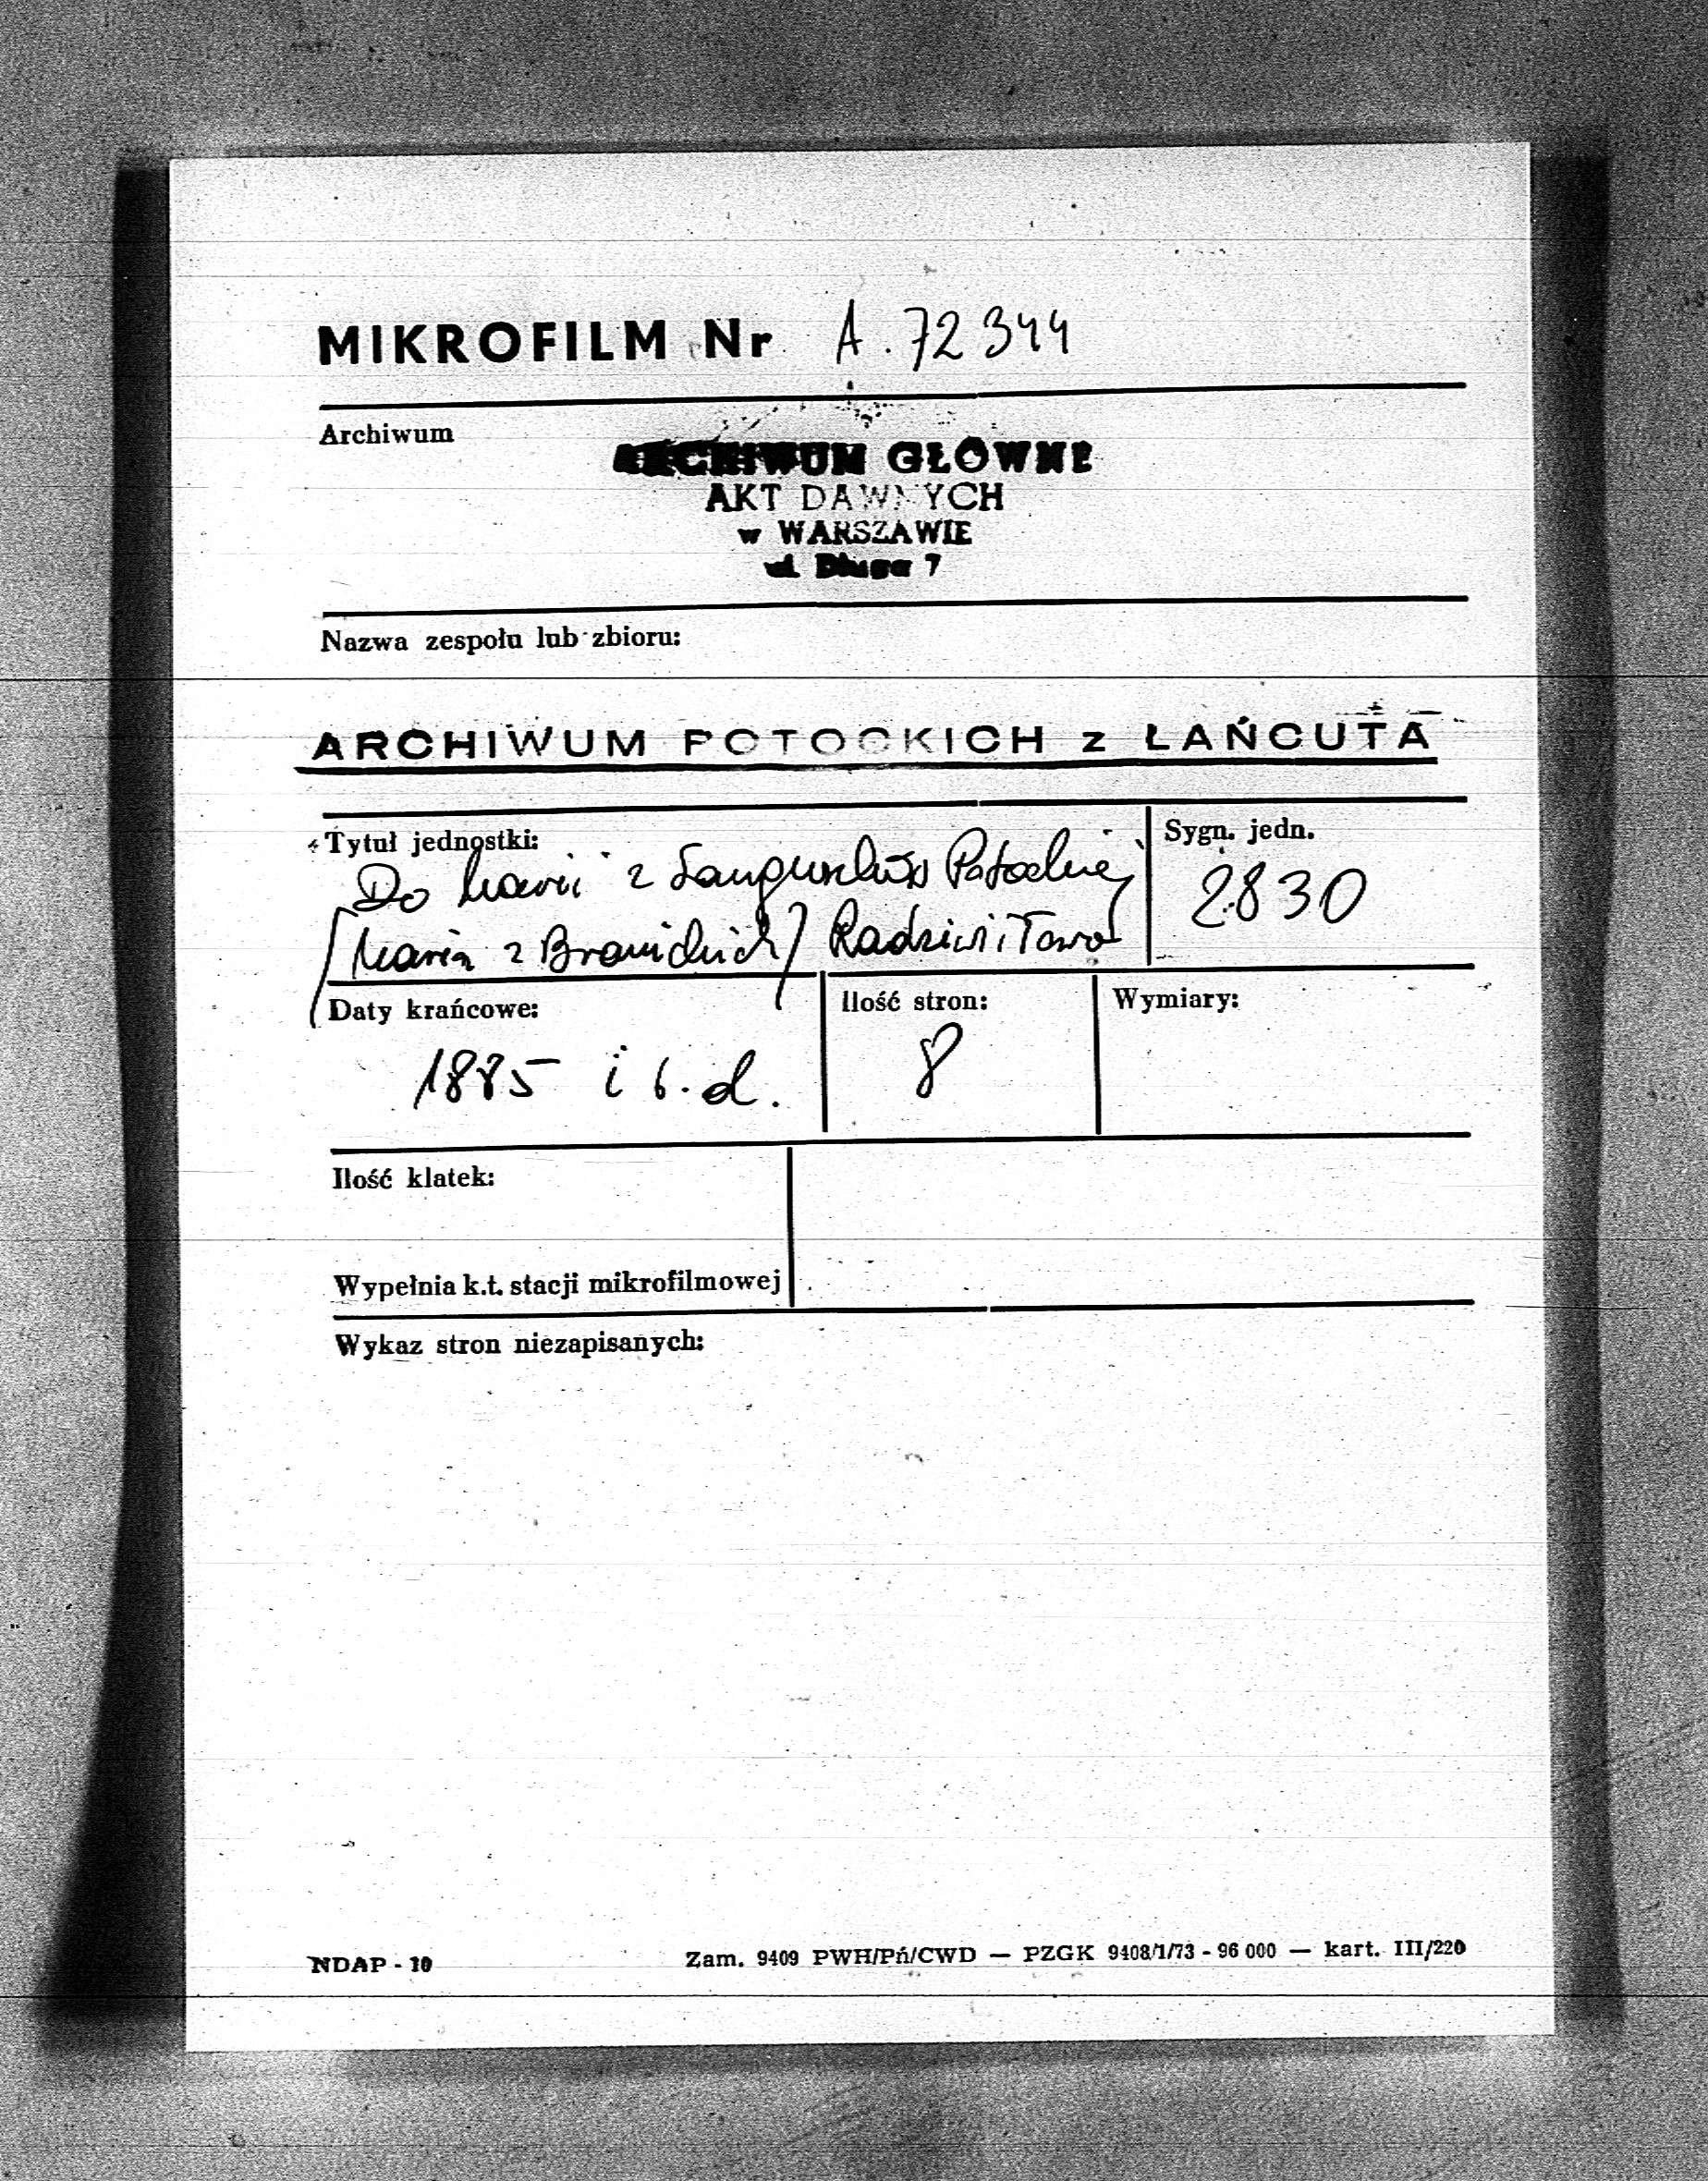 MIKROFILM Nr A. 72344
Archiwum
ARCHIWUM GŁÓWNE
AKT DAWNYCH
w WARSZAWIE
ul. Długa 7
Nazwa zespołu lub zbioru:
ARCHIWUM POTOCKICH z ŁAŃCUTA
Tytuł jednostki:
Sygn. jedn.
Do Marii z Sanguszków Potockiej
2830
/Maria z Branickich/ Radziwiłłowa
Daty krańcowe:
Ilość stron:
Wymiary:
1885 i b.d.
8
Ilość klatek:
Wypełnia k.t. stacji mikrofilmowej
Wykaz stron niezapisanych:
NDAP - 10
Zam. 9409 PWH/Pń/CWD — PZGK 9408/1/73 - 96 000 — kart. III/220